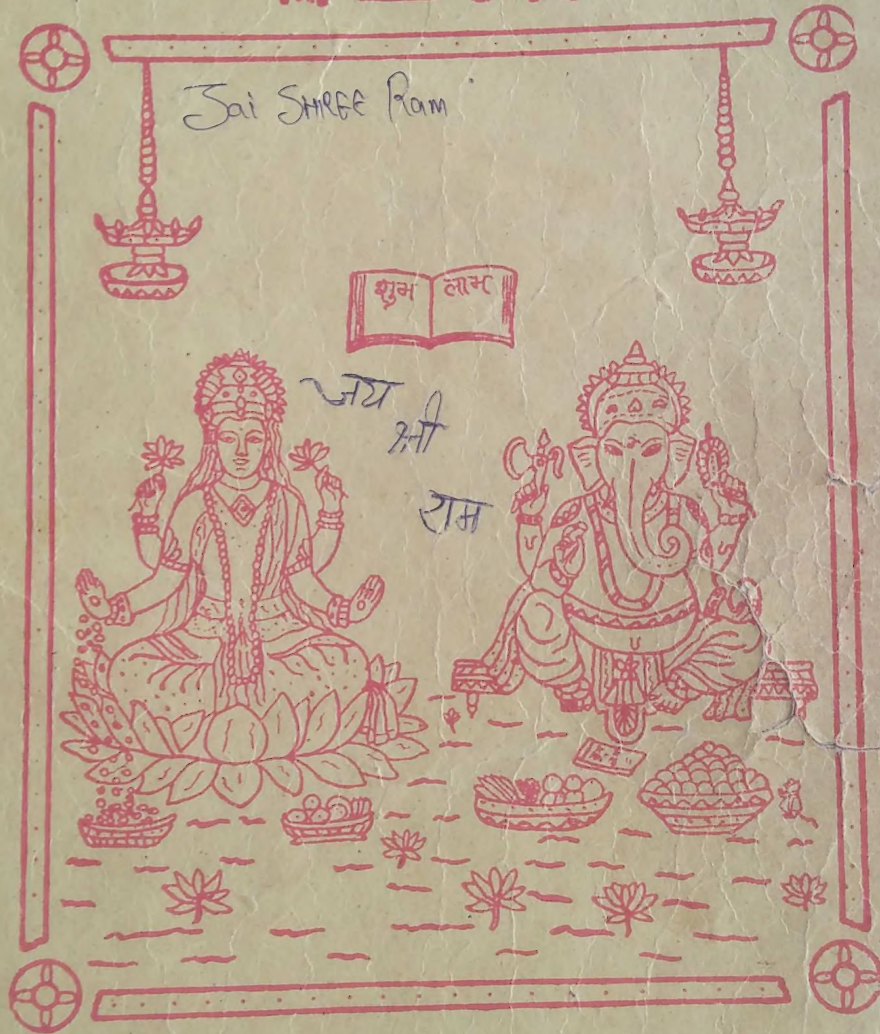 Jai SHREE Ram
शुभ लाभ
जय
श्री
राम